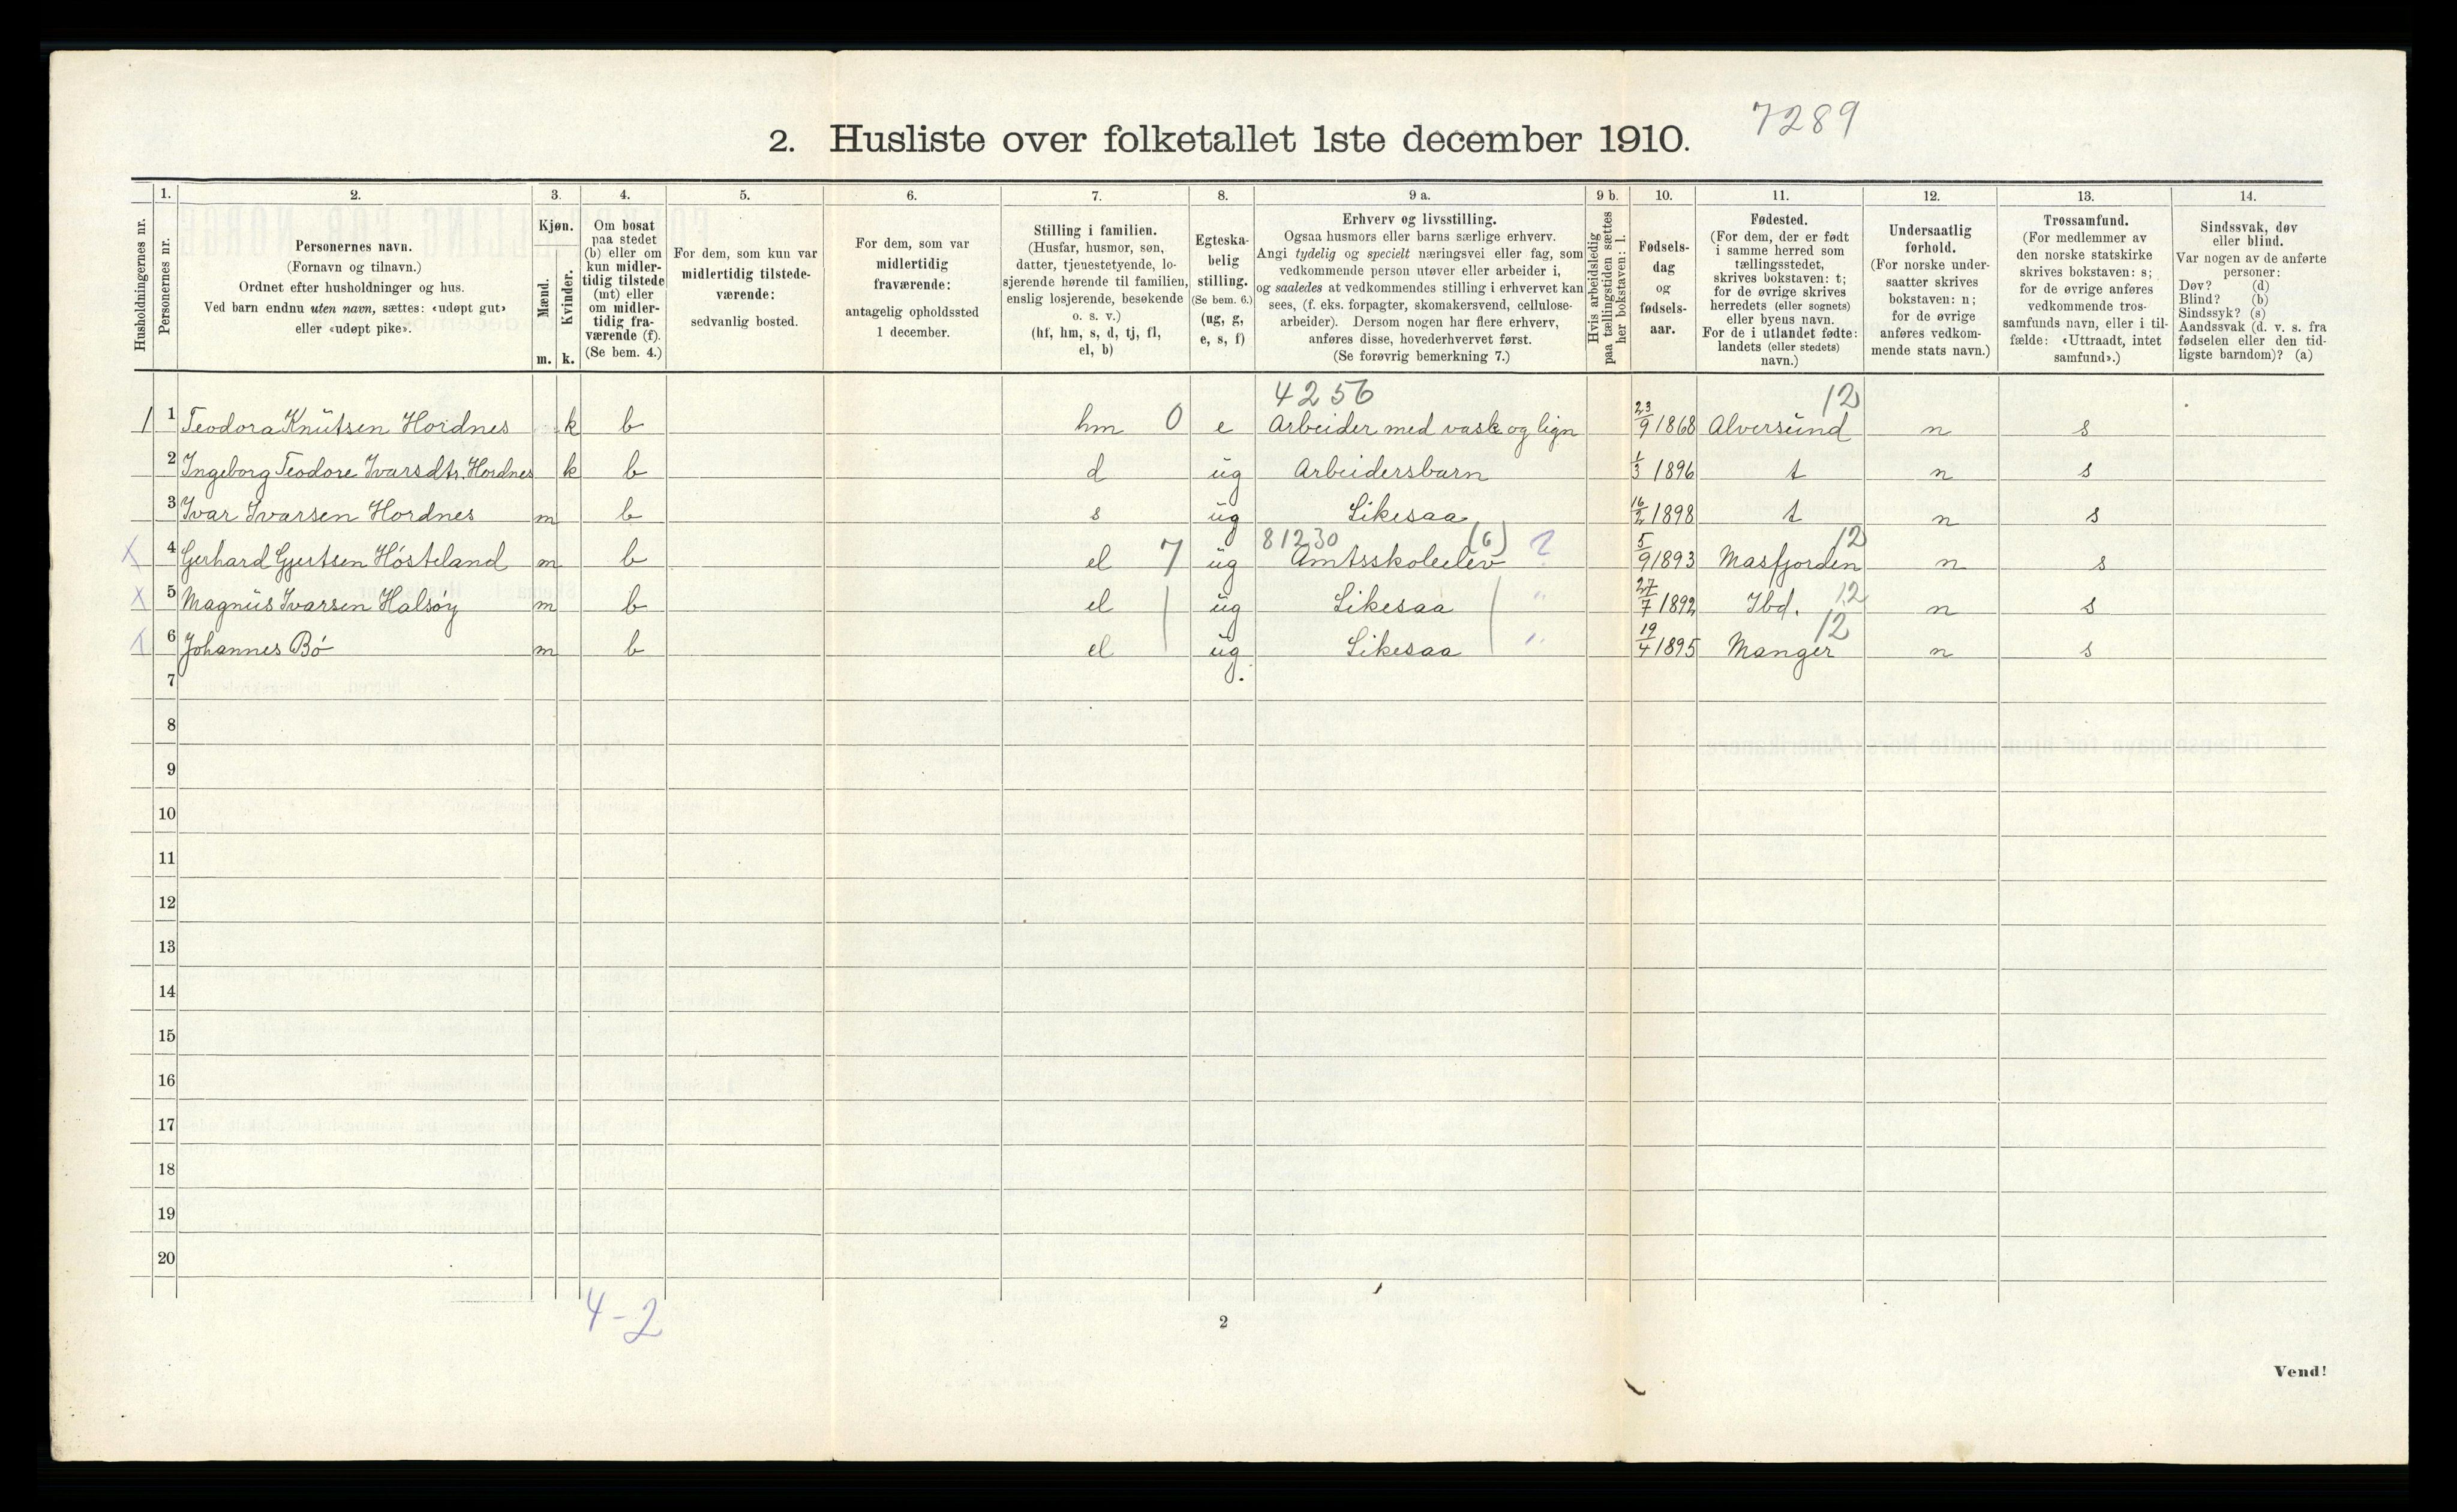 7289
2. Husliste over folketallet 1ste december 1910.
Husholdningernes nr.
1.
Personernes nr.
2.
Personernes navn.
(Fornavn og tilnavn.)
Ordnet efter husholdninger og hus.
Ved barn endnu uten navn, sættes: «udøpt gut»
eller «udøpt pike».
3.
Kjøn.
Mænd.
Kvinder.
m. k.
4.
Om bosat
paa stedet
(b) eller om
kun midler-
tidig tilstede
(mt) eller
om midler-
tidig fra-
værende (f).
(Se bem. 4.)
5.
For dem, som kun var
midlertidig tilstede-
værende:
sedvanlig bosted.
6.
For dem, som var
midlertidig
fraværende:
antagelig opholdssted
1 december.
7.
Stilling i familien.
(Husfar, husmor, søn,
datter, tjenestetyende, lo-
sjerende hørende til familien,
enslig losjerende, besøkende
o. s. v.)
(hf, hm, s, d, tj, fl,
el, b)
8.
Egteska-
belig
stilling.
(Se bem. 6.)
(ug, g,
e, s, f)
9 a.
Erhverv og livsstilling.
Ogsaa husmors eller barns særlige erhverv.
Angi tydelig og specielt næringsvei eller fag, som
vedkommende person utøver eller arbeider i,
og saaledes at vedkommendes stilling i erhvervet kan
sees, (f. eks. forpagter, skomakersvend, cellulose-
arbeider). Dersom nogen har flere erhverv,
anføres disse, hovederhvervet først.
(Se forøvrig bemerkning 7.)
9 b.
Hvis arbeidsledig
paa tællingstiden sættes
her bokstaven: l.
10.
Fødsels-
dag
og
fødsels-
aar.
11.
Fødested.
(For dem, der er født
i samme herred som
tællingsstedet,
skrives bokstaven: t;
for de øvrige skrives
herredets (eller sognets)
eller byens navn.
For de i utlandet fødte:
landets (eller stedets)
navn.)
12.
Undersaatlig
forhold.
(For norske under-
saatter skrives
bokstaven: n;
for de øvrige
anføres vedkom-
mende stats navn.)
13.
Trossamfund.
(For medlemmer av
den norske statskirke
skrives bokstaven: s;
for de øvrige anføres
vedkommende tros-
samfunds navn, eller i til-
fælde: «Uttraadt, intet
samfund».)
14.
Sindssvak, døv
eller blind.
Var nogen av de anførte
personer:
Døv? (d)
Blind? (b)
Sindssyk? (s)
Aandssvak (d. v. s. fra
fødselen eller den tid-
ligste barndom)? (a)
4256 12
1 1 Teodora Knutsen Hordnes k b hm 0 e Arbeider med vask og lign 23/9 1868 Alversund n s
2 Ingeborg Teodore Ivarsdtr. Hordnes k b d ug Arbeidersbarn 1/3 1896 t n s
3 Ivar Ivarsen Hordnes m b s ug Likesaa 16/2 1898 t n s
81230 (6) 12
X 4 Gerhard Gjertsen Høsteland m b el 7 ug Amtsskoleelev ? 5/9 1893 Masfjorden n s
X 5 Magnus Ivarsen Halsøy m b el | ug Likesaa | " 27/7 1892 Ibd. 12 n s
12
X 6 Johannes Bø m b el | ug. Likesaa | " 19/4 1895 Manger n s
7
8
9
10
11
12
13
14
15
16
17
18
19
20
4-2
2
Vend!